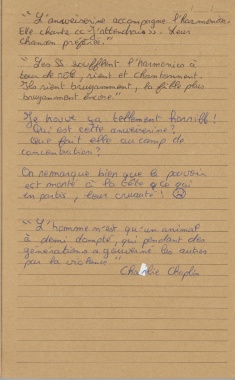 "L'anweiserine accompagne l'harmonica.
Elle chante "J'attendrai". Leur
chanson préférée."
"Les SS soufflent l'harmonica à
tour de rôle, rient et chantonnent.
Ils rient bruyamment, la fille plus
bruyamment encore"
Je trouve ça tellement horrible!
Qui est cette anweiserine?
Que fait elle au camp de
concentration?
On remarque bien que le pouvoir
est monté à la tête
en partie, leur cruauté!
"L'homme n'est qu'un animal
à demi dompté, qui pendant des
générations a gouverné les autres
par la violence"
Charlie Chaplin